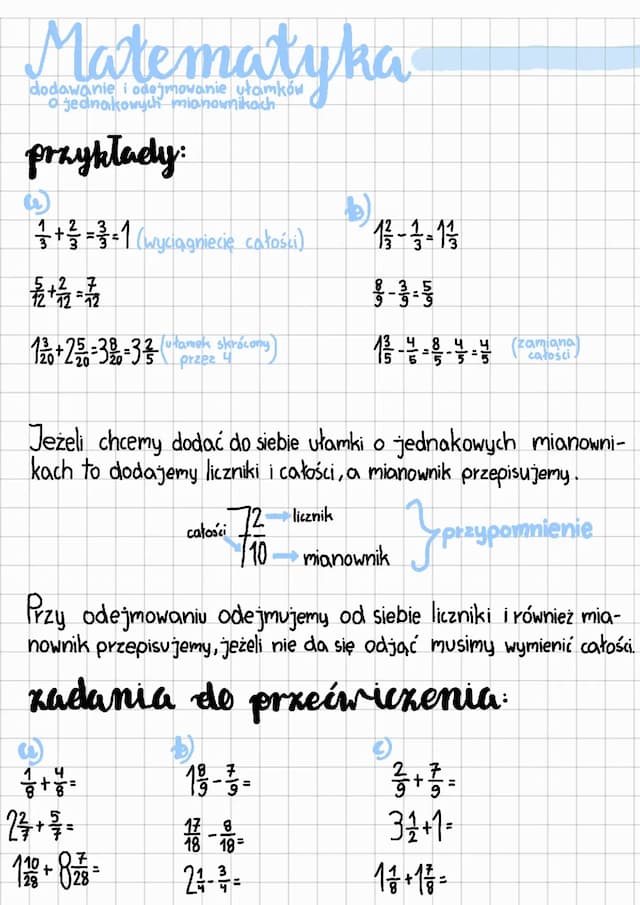 Matematyka
dodawanie i odejmowanie ułamków
o jednakowych mianownikach
przykłady:
a)
b)
1/3 + 2/3 = 3/3 = 1 (wyciągniecię całości)
1 2/3 - 1/3 = 1 1/3
5/12 + 2/12 = 7/12
8/9 - 3/9 = 5/9
1 3/20 + 2 5/20 = 3 8/20 = 3 2/5 (ułamek skrócony przez 4)
1 3/5 - 4/5 = 8/5 - 4/5 = 4/5 (zamiana całości)
Jeżeli chcemy dodać do siebie ułamki o jednakowych mianowni-
kach to dodajemy liczniki i całości, a mianownik przepisujemy.
całości 7 2/10 → licznik
→ mianownik
przypomnienie
Przy odejmowaniu odejmujemy od siebie liczniki i również mia-
nownik przepisujemy, jeżeli nie da się odjąć musimy wymienić całości.
zadania do przećwiczenia:
a)
b)
c)
1/8 + 4/8 =
1 8/9 - 7/9 =
2/9 + 7/9 =
2 2/7 + 5/7 =
17/18 - 8/18 =
3 1/2 + 1 =
1 10/28 + 8 7/28 =
2 1/4 - 3/4 =
1 1/8 + 1 7/8 =